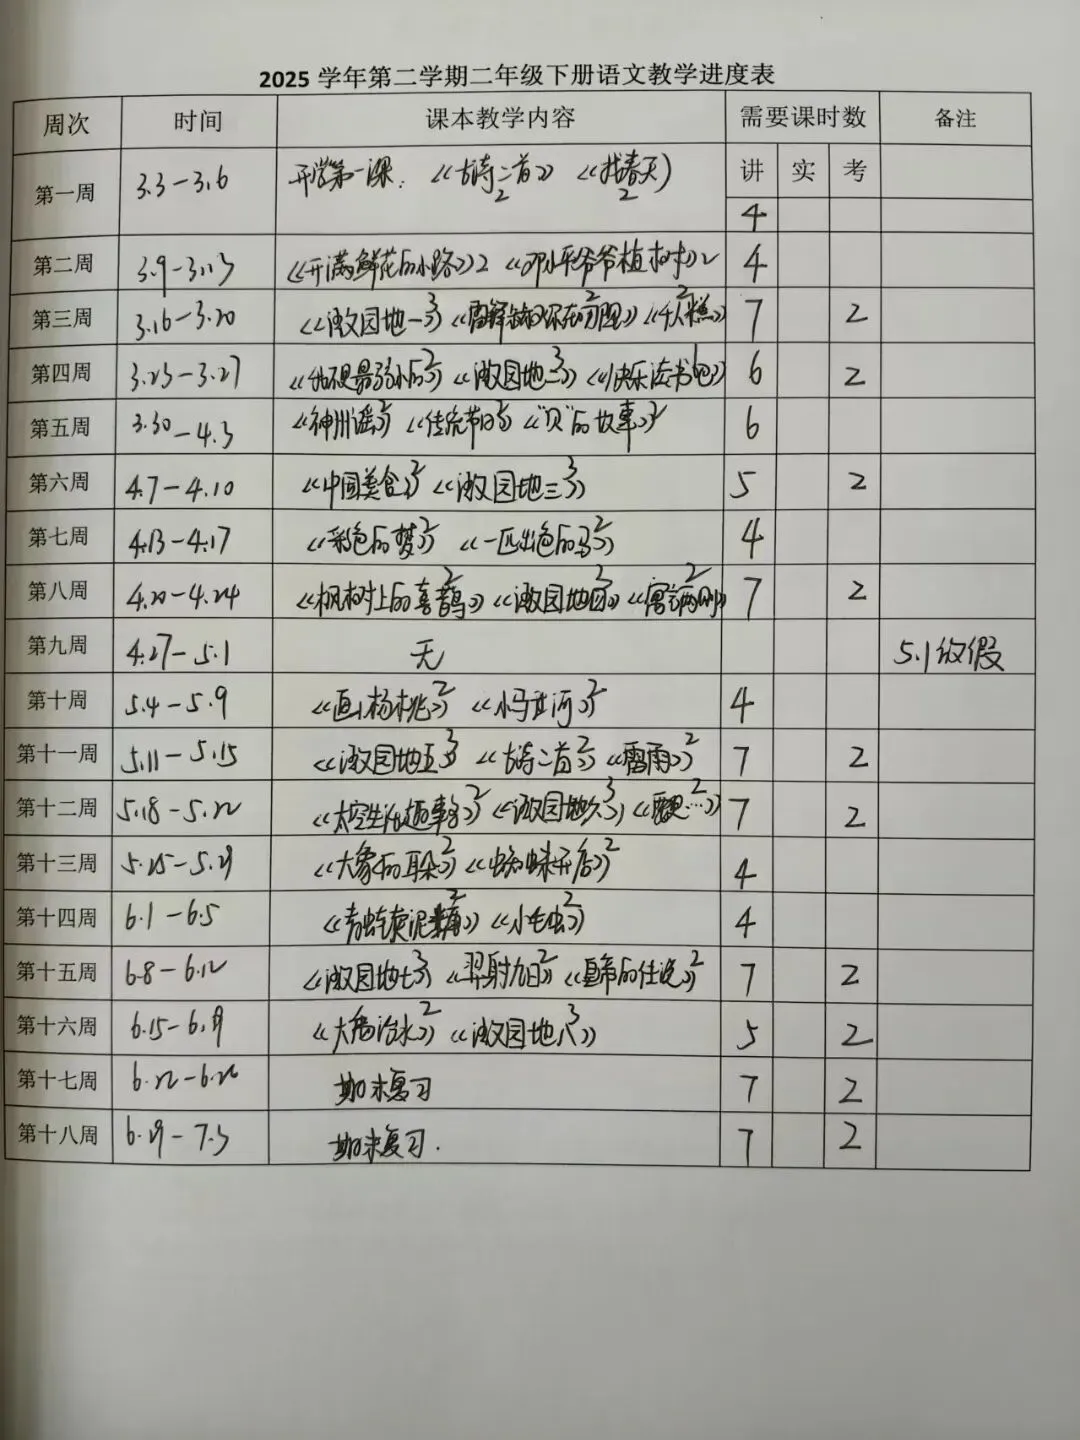 2025 学年第二学期二年级下册语文教学进度表
周次 时间 课本教学内容 需要课时数 备注
第一周 3.3-3.6 开学第一课. 《古诗二首》2 《找春天》2 讲 实 考
4
第二周 3.9-3.13 《开满鲜花的小路》2 《邓小平爷爷植树》2 4
第三周 3.16-3.20 《语文园地一》3 《雷锋叔叔你在哪里》2 《千人糕》2 7 2
第四周 3.23-3.27 《我不是最弱小的》2 《语文园地二》3 《快乐读书吧》1 6 2
第五周 3.30-4.3 《神州谣》2 《传统节日》2 《"贝"的故事》2 6
第六周 4.7-4.10 《中国美食》2 《语文园地三》3 5 2
第七周 4.13-4.17 《彩色的梦》2 《一匹出色的马》2 4
第八周 4.20-4.24 《枫树上的喜鹊》2 《语文园地四》3 《寓言两则》2 7 2
第九周 4.27-5.1 无 5.1放假
第十周 5.4-5.9 《画杨桃》2 《小马过河》2 4
第十一周 5.11-5.15 《语文园地五》3 《古诗二首》2 《雷雨》2 7 2
第十二周 5.18-5.22 《太空生活趣事多》2 《语文园地六》3 2 7 2
第十三周 5.25-5.29 《大象的耳朵》2 《蜘蛛开店》2 4
第十四周 6.1-6.5 《青蛙卖泥塘》2 《小毛虫》2 4
第十五周 6.8-6.12 《语文园地七》3 《羿射九日》2 《皇帝的传说》2 7 2
第十六周 6.15-6.19 《大禹治水》2 《语文园地八》3 5 2
第十七周 6.22-6.26 期末复习 7 2
第十八周 6.29-7.3 期末复习. 7 2